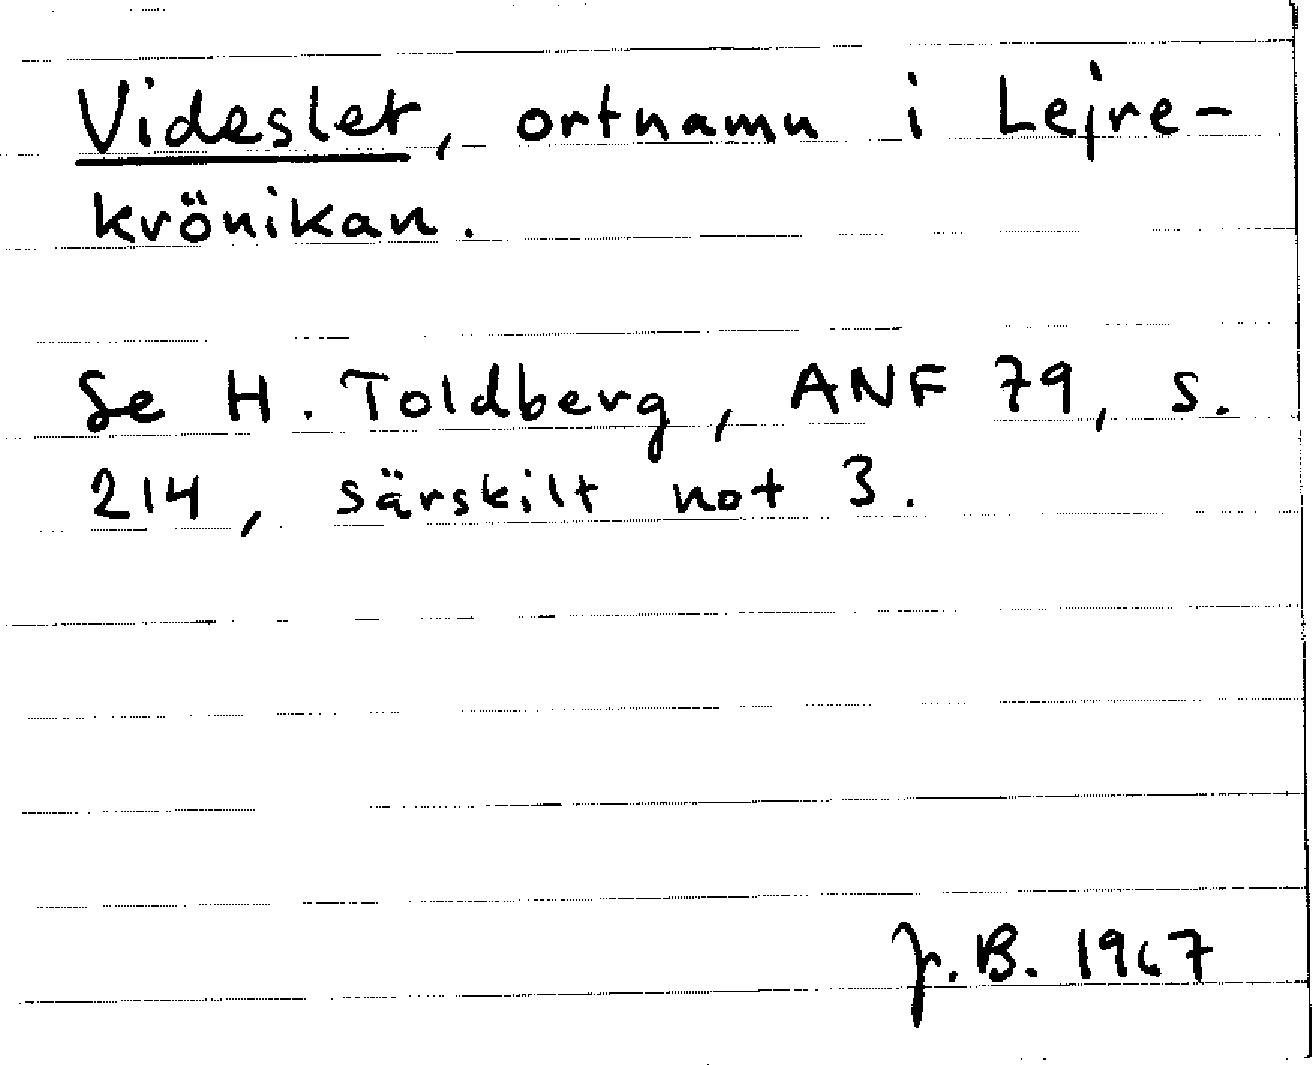 Videslet, ortnamn i Lejre-
krönikan.
Se H. Toldberg, ANF 79, s.
214, särskilt not 3.
J.B. 1967